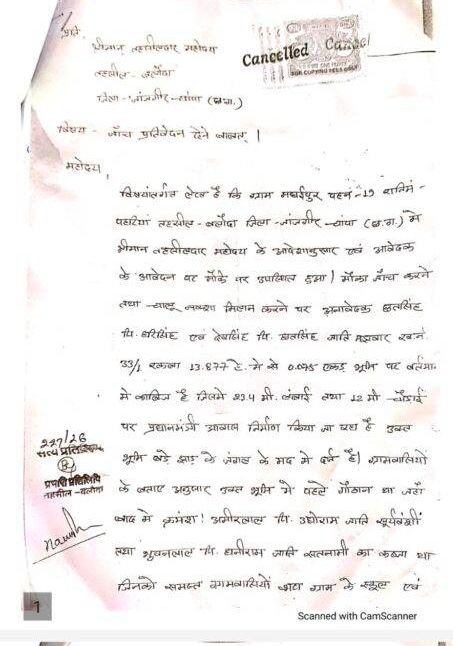 प्रति,
श्रीमान् तहसीलदार महोदय
तहसील - बलौदा
जिला - जांजगीर - चांपा (छ.ग.)
Cancelled Cancel
FOR COPYING FEES ONLY
विषय - जाँच प्रतिवेदन देने बाबत् ।
महोदय,
विषयांतर्गत लेख है कि ग्राम पहनं - 19 रानिमं -
तहसील - बलौदा जिला - जांजगीर - चांपा (छ.ग.) में
श्रीमान तहसीलदार महोदय के आदेशानुसार एवं आवेदक
के आवेदन पर मौके पर उपस्थित हुआ। मौका जाँच करने
तथा चालू नक्शा मिलान करने पर अनावेदक छतसिंह
पि. हरिसिंह एवं देवसिंह पि. छतसिंह जाति मझवार ख.नं.
33/1 रकबा 13.877 हे. में से 0.075 एकड़ भूमि पर वर्तमान
में काबिज है जिसमें 23.4 मी. लंबाई तथा 12 मी. चौड़ाई
पर प्रधानमंत्री आवास निर्माण किया जा रहा है उक्त
भूमि बड़े झाड़ के जंगल के मद में दर्ज है। ग्रामवासियों
के बताए अनुसार उक्त भूमि में पहले गौठान था जहाँ
बाद में क्रमशः अमीरलाल पि. उधोराम जाति सूर्यवंशी
तथा भुवनलाल पि. धनीराम जाति सतनामी का कब्जा था
जिनको समस्त ग्रामवासियों द्वारा ग्राम के स्कूल एवं
227/26
सत्य प्रतिलिपि
प्रधान प्रतिलिपि
तहसील - बलौदा
1
Scanned with CamScanner